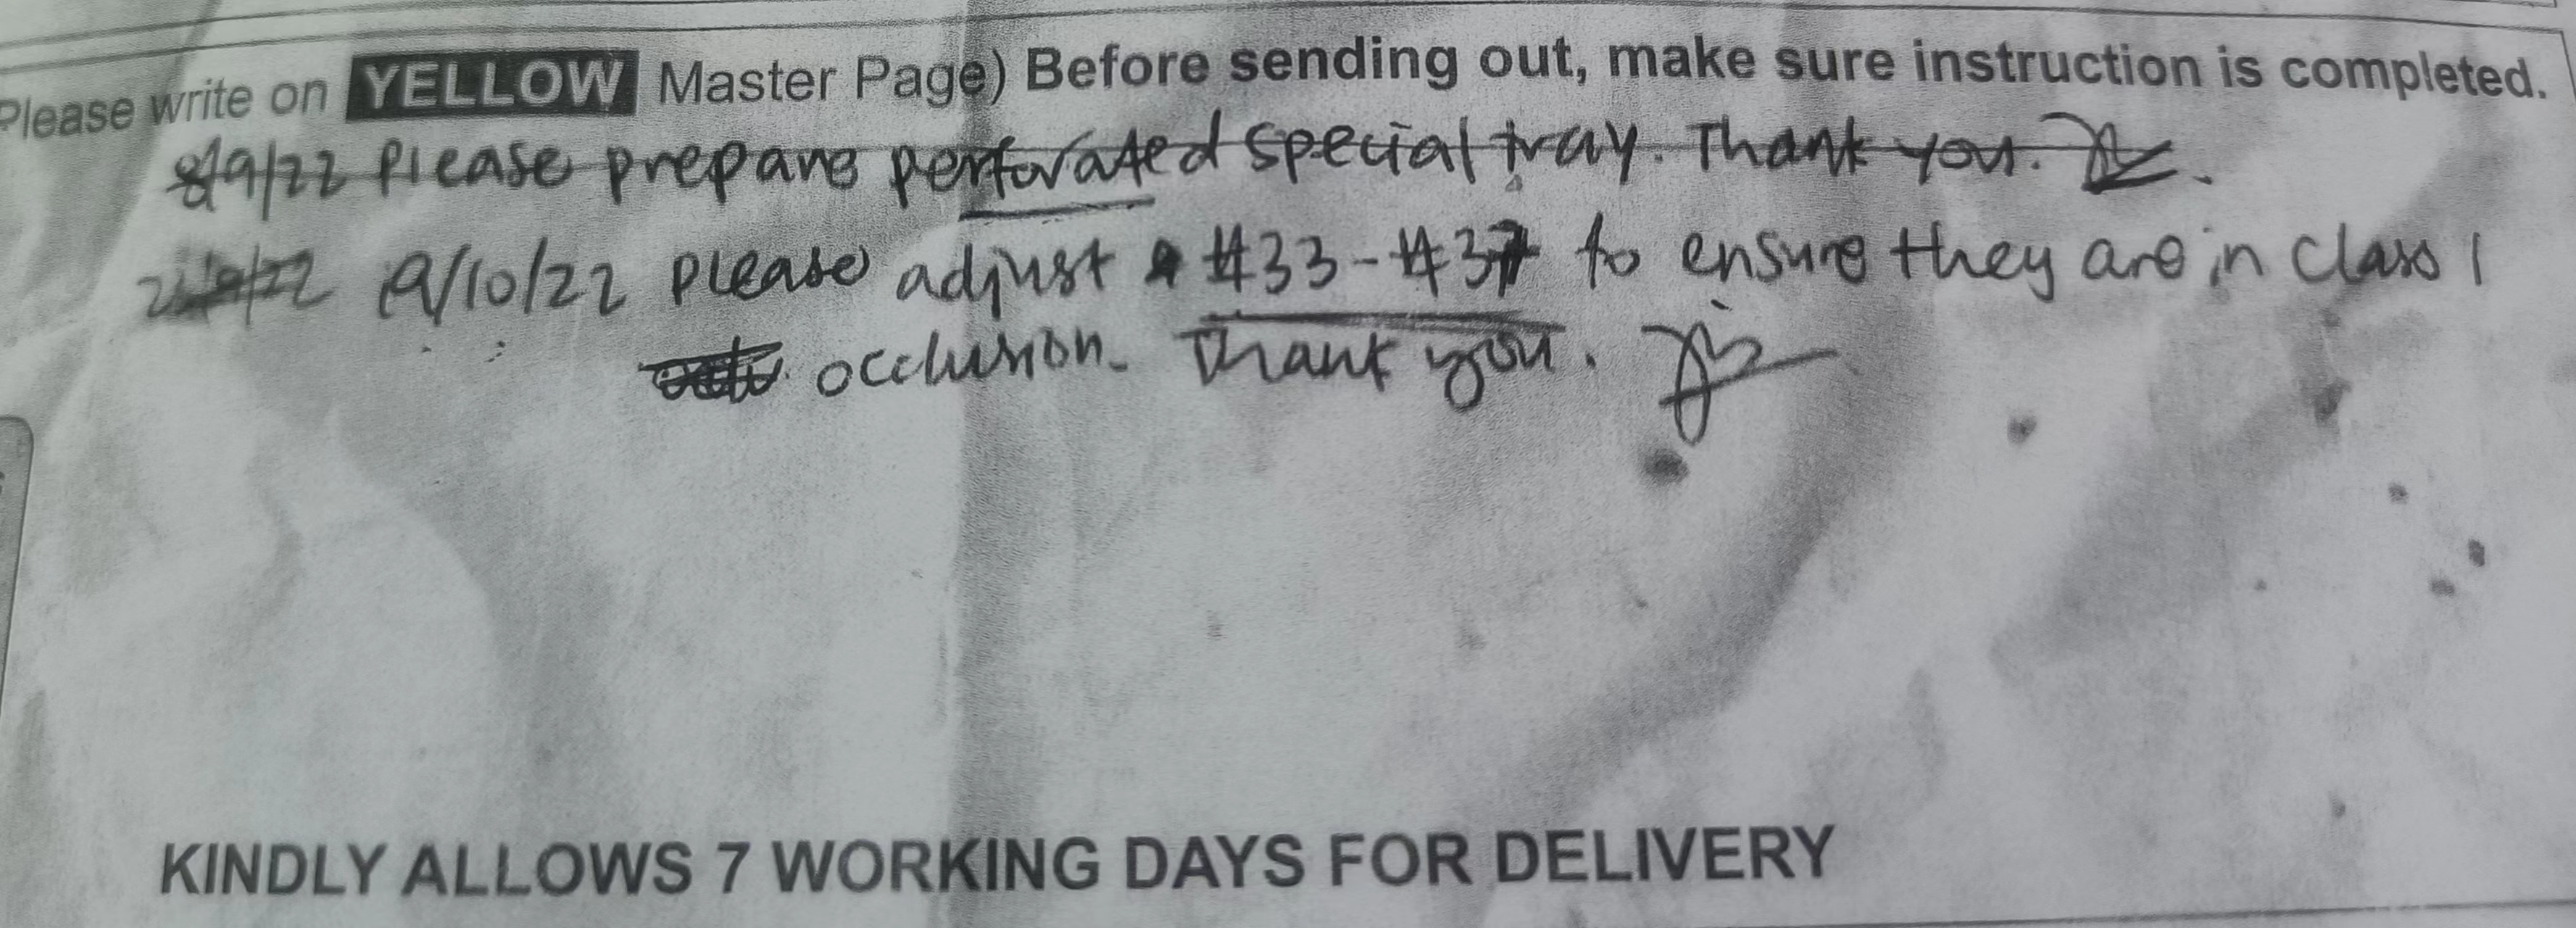 Please write on YELLOW Master Page) Before sending out, make sure instruction is completed.
8/9/22 Please prepare perforated special tray. Thank you.
19/10/22 please adjust #33-#37 to ensure they are in class 1
occlusion. Thank you.
KINDLY ALLOWS 7 WORKING DAYS FOR DELIVERY